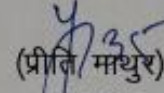 (प्रीति माथुर)